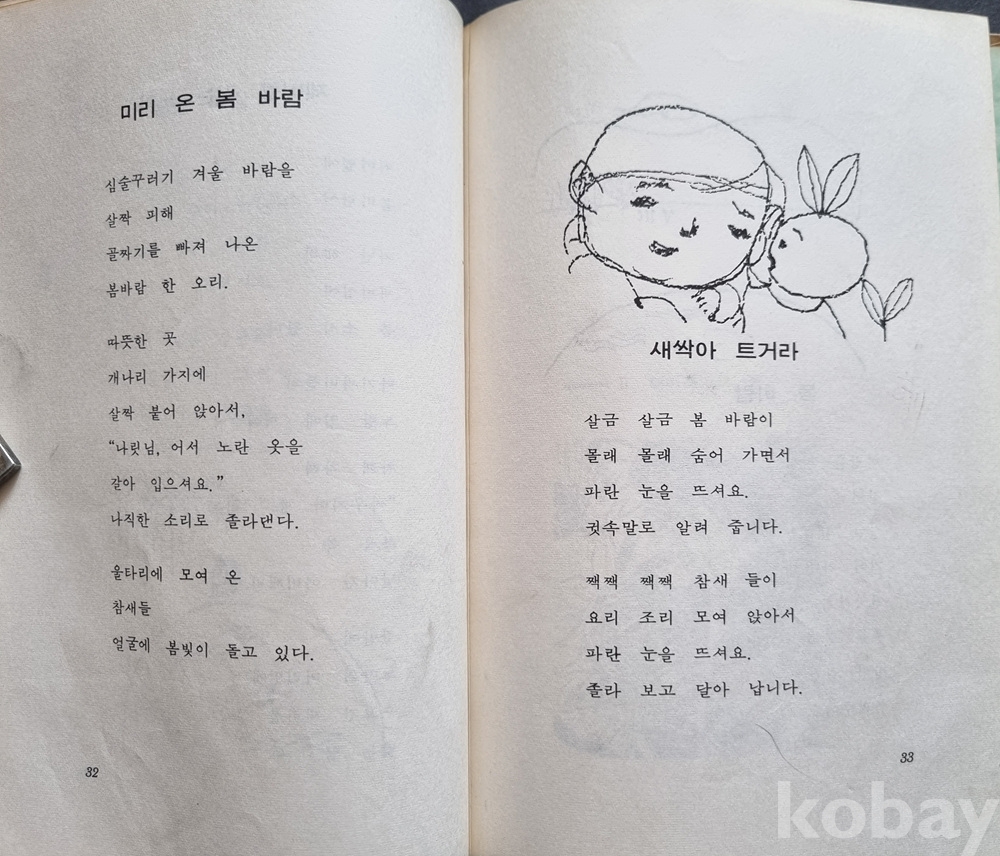 미리 온 봄 바람
심술꾸러기 겨울 바람을
살짝 피해
골짜기를 빠져 나온
봄바람 한 오리.
따뜻한 곳
개나리 가지에
살짝 붙어 앉아서,
“나릿님, 어서 노란 옷을
갈아 입으셔요.”
나직한 소리로 졸라댄다.
울타리에 모여 온
참새들
얼굴에 봄빛이 돌고 있다.
32
새싹아 트거라
살금 살금 봄 바람이
몰래 몰래 숨어 가면서
파란 눈을 뜨셔요.
귓속말로 알려 줍니다.
짹짹 짹짹 참새 들이
요리 조리 모여 앉아서
파란 눈을 뜨셔요.
졸라 보고 달아 납니다.
33
kobay